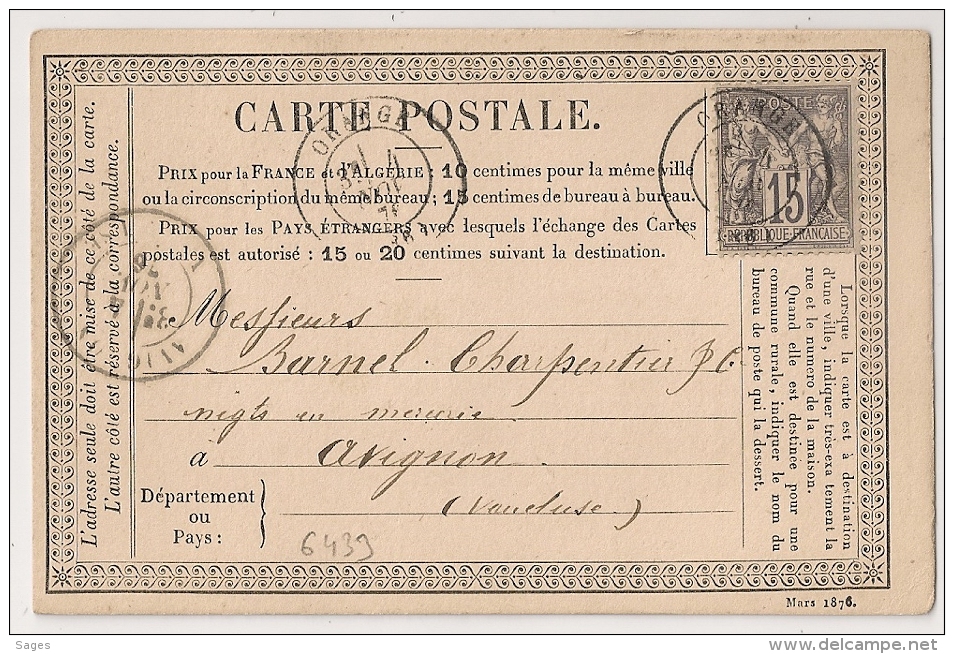 CARTE POSTALE.
PRIX pour la FRANCE et l'ALGÉRIE : 10 centimes pour la même ville
ou la circonscription du même bureau; 15 centimes de bureau à bureau.
PRIX pour les PAYS ÉTRANGERS avec lesquels l'échange des Cartes
postales est autorisé : 15 ou 20 centimes suivant la destination.
ORANGE
ORANGE
POSTE
15
REPUBLIQUE-FRANÇAISE
L'adresse seule doit être mise de ce côté de la carte.
L'autre côté est réservé à la correspondance.
Messieurs
Barnel. Charpentier & C.
negts en mercerie
à Avignon
Département
ou
Pays :
(Vaucluse)
6439
Lorsque la carte est à destination
d'une ville, indiquer très-exa tement la
rue et le numero de la maison.
Quand elle est destinée pour une
commune rurale, indiquer le nom du
bureau de poste qui la dessert.
Mars 1876.
Sages
www.delcampe.net